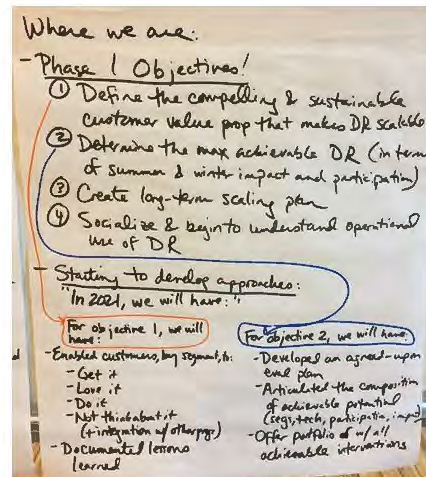 Where we are:
- Phase 1 Objectives!
① Define the compelling & sustainable
customer value prop that makes DR scalable
② Determine the max achievable DR (in term
of summer & winter impact and participation)
③ Create long-term scaling plan
④ Socialize & begin to understand operational
use of DR
- Starting to develop approaches:
"In 2021, we will have:"
For objective 1, we will
have:
- Enabled customers, by segment, to:
- Get it
- Love it
- Do it
- Not think about it
(+ integration w/ other pgs)
- Documented lessons
learned
For objective 2, we will have:
- Developed an agreed-upon
eval plan
- Articulated the composition
of achievable potential
(segs, tech, participation, impact)
- Offer portfolio of w/ all
achievable interventions